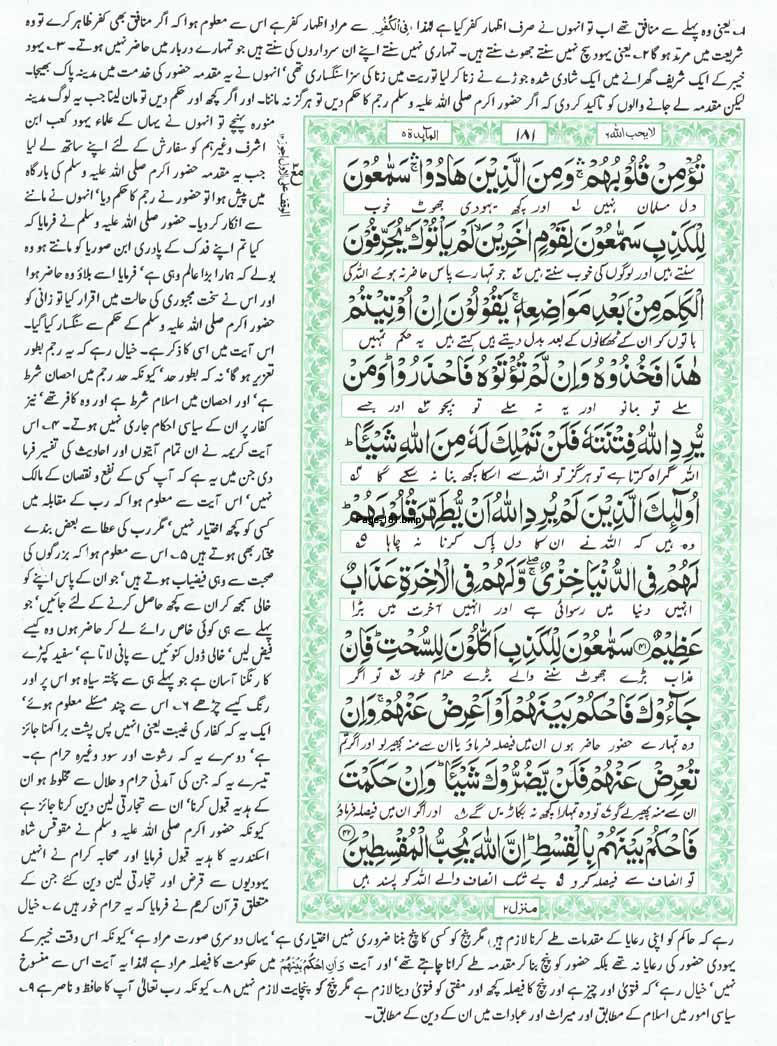 ۱۔ یعنی وہ پہلے سے منافق تھے اب تو انہوں نے صرف اظہار کفر کیا ہے لہٰذا فِی الْکُفْرِ سے مراد اظہار کفر ہے اس سے معلوم ہوا کہ اگر منافق بھی کفر ظاہر کرے تو وہ
شریعت میں مرتد ہو گا ۲۔ یعنی یہود سچ نہیں سنتے جھوٹ سنتے ہیں۔ تمہاری نہیں سنتے اپنے ان سرداروں کی سنتے ہیں جو تمہارے دربار میں حاضر نہیں ہوتے۔ ۳۔ یہود
خیبر کے ایک شریف گھرانے میں ایک شادی شدہ جوڑے نے زنا کر لیا توریت میں زنا کی سزا سنگساری تھی' انہوں نے یہ مقدمہ حضور کی خدمت میں مدینہ پاک بھیجا۔
لیکن مقدمہ لے جانے والوں کو تاکید کر دی کہ اگر حضور اکرم صلی اللہ علیہ وسلم رجم کا حکم دیں تو ہرگز نہ ماننا۔ اور اگر کچھ اور حکم دیں تو مان لینا جب یہ لوگ مدینہ
منورہ پہنچے تو انہوں نے یہاں کے علماء یہود کعب ابن
اشرف وغیرہم کو سفارش کے لئے اپنے ساتھ لے لیا
جب یہ مقدمہ حضور اکرم صلی اللہ علیہ وسلم کی بارگاہ
میں پیش ہوا تو حضور نے رجم کا حکم دیا' انہوں نے ماننے
سے انکار کر دیا۔ حضور صلی اللہ علیہ وسلم نے فرمایا کہ
کیا تم اپنے فدک کے پادری ابن صوریا کو مانتے ہو وہ
بولے کہ ہمارا بڑا عالم وہی ہے' فرمایا اسے بلاؤ وہ حاضر ہوا
اور اس نے سخت مجبوری کی حالت میں اقرار کیا تو زانی کو
حضور اکرم صلی اللہ علیہ وسلم کے حکم سے سنگسار کیا گیا۔
اس آیت میں اسی کا ذکر ہے۔ خیال رہے کہ یہ رجم بطور
تعزیر ہو گا' نہ کہ بطور حد' کیونکہ حد رجم میں احصان شرط
ہے' اور احصان میں اسلام شرط ہے اور وہ کافر تھے' نیز
کفار پر ان کے سیاسی احکام جاری نہیں ہوتے۔ ۴۔ اس
آیت کریمہ نے ان تمام آیتوں اور احادیث کی تفسیر فرما
دی جن میں یہ ہے کہ آپ کسی کے نفع و نقصان کے مالک
نہیں' اس آیت سے معلوم ہوا کہ رب کے مقابلہ میں
کسی کو کچھ اختیار نہیں' مگر رب کی عطا سے بعض بندے
مختار بھی ہوتے ہیں ۵۔ اس سے معلوم ہوا کہ بزرگوں کی
صحبت سے وہی فیضیاب ہوتے ہیں' جو ان کے پاس اپنے کو
خالی سمجھ کر ان سے کچھ حاصل کرنے کے لئے جائیں' جو
پہلے سے ہی کوئی خاص رائے لے کر حاضر ہوں وہ کیسے
فیض لیں' خالی ڈول کنوئیں سے پانی لاتا ہے' سفید کپڑے
کا رنگنا آسان ہے جو پہلے ہی سے پختہ سیاہ ہو اس پر اور
رنگ کیسے چڑھے ۶۔ اس سے چند مسئلے معلوم ہوئے'
ایک یہ کہ کفار کی غیبت یعنی انہیں پس پشت برا کہنا جائز
ہے' دوسرے یہ کہ رشوت اور سود وغیرہ حرام ہے۔
تیسرے یہ کہ جن کی آمدنی حرام و حلال سے مخلوط ہو ان
کے ہدیہ قبول کرنا' ان سے تجارتی لین دین کرنا جائز ہے
کیونکہ حضور اکرم صلی اللہ علیہ وسلم نے مقوقس شاہ
اسکندریہ کا ہدیہ قبول فرمایا اور صحابہ کرام نے انہیں
یہودیوں سے قرض اور تجارتی لین دین کئے جن کے
متعلق قرآن کریم نے فرمایا کہ یہ حرام خور ہیں ۷۔ خیال
لا یحب اللہ ۶
۱۸۱
المآئدة ۵
تُؤْمِنْ قُلُوْبُهُمْ ۛۚ وَمِنَ الَّذِيْنَ هَادُوْا ۛۚ سَمّٰعُوْنَ
دل مسلمان نہیں ۱ اور کچھ یہودی جھوٹ خوب
لِلْكَذِبِ سَمّٰعُوْنَ لِقَوْمٍ اٰخَرِيْنَ ۙ لَمْ يَاْتُوْكَ ؕ يُحَرِّفُوْنَ
سنتے ہیں اور لوگوں کی خوب سنتے ہیں ۲ جو تمہارے پاس حاضر نہ ہوئے اللہ کی
الْكَلِمَ مِنْۢ بَعْدِ مَوَاضِعِهٖ ۚ يَقُوْلُوْنَ اِنْ اُوْتِيْتُمْ
باتوں کو ان کے ٹھکانوں کے بعد بدل دیتے ہیں کہتے ہیں یہ حکم تمہیں
هٰذَا فَخُذُوْهُ وَاِنْ لَّمْ تُؤْتَوْهُ فَاحْذَرُوْا ؕ وَمَنْ
ملے تو مانو اور یہ نہ ملے تو بچو ۳ اور جسے
يُّرِدِ اللّٰهُ فِتْنَتَهٗ فَلَنْ تَمْلِكَ لَهٗ مِنَ اللّٰهِ شَيْـًٔا ؕ
اللہ گمراہ کرنا چاہے تو ہرگز تو اللہ سے اس کا کچھ بنا نہ سکے گا ۴
اُولٰٓئِكَ الَّذِيْنَ لَمْ يُرِدِ اللّٰهُ اَنْ يُّطَهِّرَ قُلُوْبَهُمْ ؕ
Page-181.bmp
وہ ہیں کہ اللہ نے ان کا دل پاک کرنا نہ چاہا ۵
لَهُمْ فِى الدُّنْيَا خِزْىٌ ۖۚ وَّلَهُمْ فِى الْاٰخِرَةِ عَذَابٌ
انہیں دنیا میں رسوائی ہے اور انہیں آخرت میں بڑا
عَظِيْمٌ ﴿۴۱﴾ سَمّٰعُوْنَ لِلْكَذِبِ اَكّٰلُوْنَ لِلسُّحْتِ ؕ فَاِنْ
عذاب بڑے جھوٹ سننے والے بڑے حرام خور ۶ تو اگر
جَآءُوْكَ فَاحْكُمْ بَيْنَهُمْ اَوْ اَعْرِضْ عَنْهُمْ ۚ وَاِنْ
وہ تمہارے حضور حاضر ہوں ان میں فیصلہ فرماؤ یا ان سے منہ پھیر لو اور اگر تم
تُعْرِضْ عَنْهُمْ فَلَنْ يَّضُرُّوْكَ شَيْـًٔا ؕ وَاِنْ حَكَمْتَ
ان سے منہ پھیر لو گے ۷ تو وہ تمہارا کچھ نہ بگاڑیں گے ۸ اور اگر ان میں فیصلہ فرماؤ
فَاحْكُمْ بَيْنَهُمْ بِالْقِسْطِ ؕ اِنَّ اللّٰهَ يُحِبُّ الْمُقْسِطِيْنَ ﴿۴۲﴾
تو انصاف سے فیصلہ کرو ۹ بے شک انصاف والے اللہ کو پسند ہیں
منزل ۲
رہے کہ حاکم کو اپنی رعایا کے مقدمات طے کرنا لازم ہیں مگر پنچ کو کسی کا پنچ بننا ضروری نہیں اختیاری ہے' یہاں دوسری صورت مراد ہے' کیونکہ اس وقت خیبر کے
یہودی حضور کی رعایا نہ تھے بلکہ حضور کو پنچ بنا کر مقدمہ طے کرانا چاہتے تھے' اور آیت وَاَنِ احْكُمْ بَيْنَهُمْ میں حکومت کا فیصلہ مراد ہے لہٰذا یہ آیت اس سے منسوخ
نہیں' خیال رہے' کہ فتویٰ اور چیز ہے اور پنچ کا فیصلہ کچھ اور مفتی کو فتویٰ دینا لازم ہے مگر پنچ کو پنچایت لازم نہیں ۸۔ کیونکہ رب تعالیٰ آپ کا حافظ و ناصر ہے ۹۔
سیاسی امور میں اسلام کے مطابق اور میراث اور عبادات میں ان کے دین کے مطابق۔